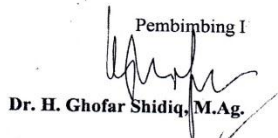 Pembimbing I
Dr. H. Ghofar Shidiq, M.Ag.